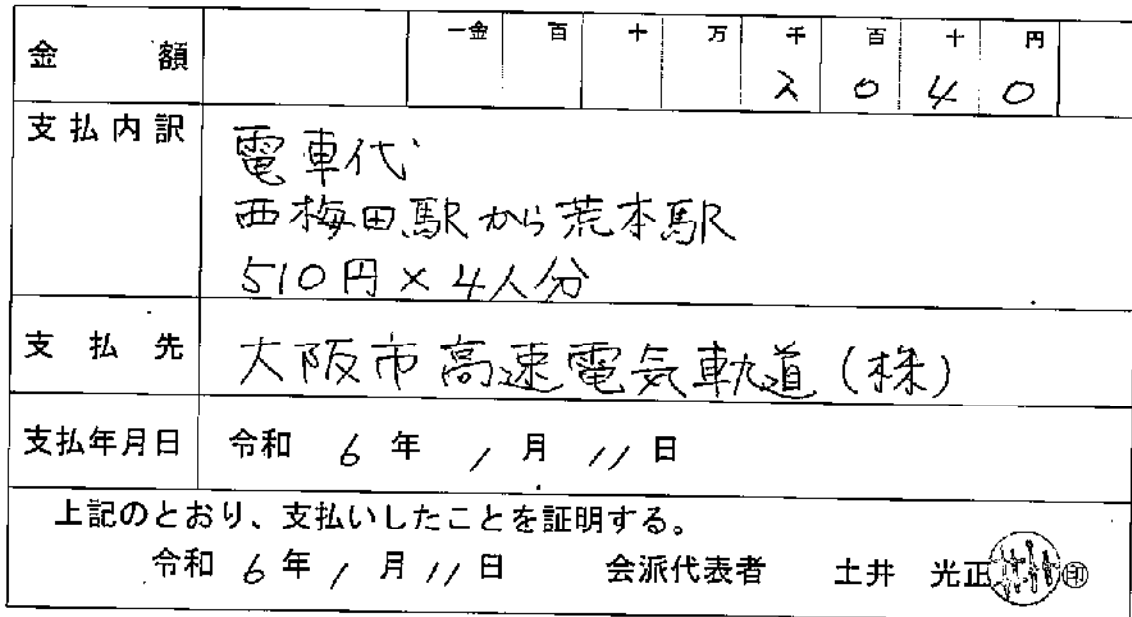 一金 百 十 万 千 百 十 円
金額 2 0 4 0
支払内訳
電車代
西梅田駅から荒本駅
510円×4人分
支払先 大阪市高速電気軌道(株)
支払年月日 令和 6 年 1 月 11 日
上記のとおり、支払いしたことを証明する。
令和 6 年 1 月 11 日 会派代表者 土井 光正 ㊞